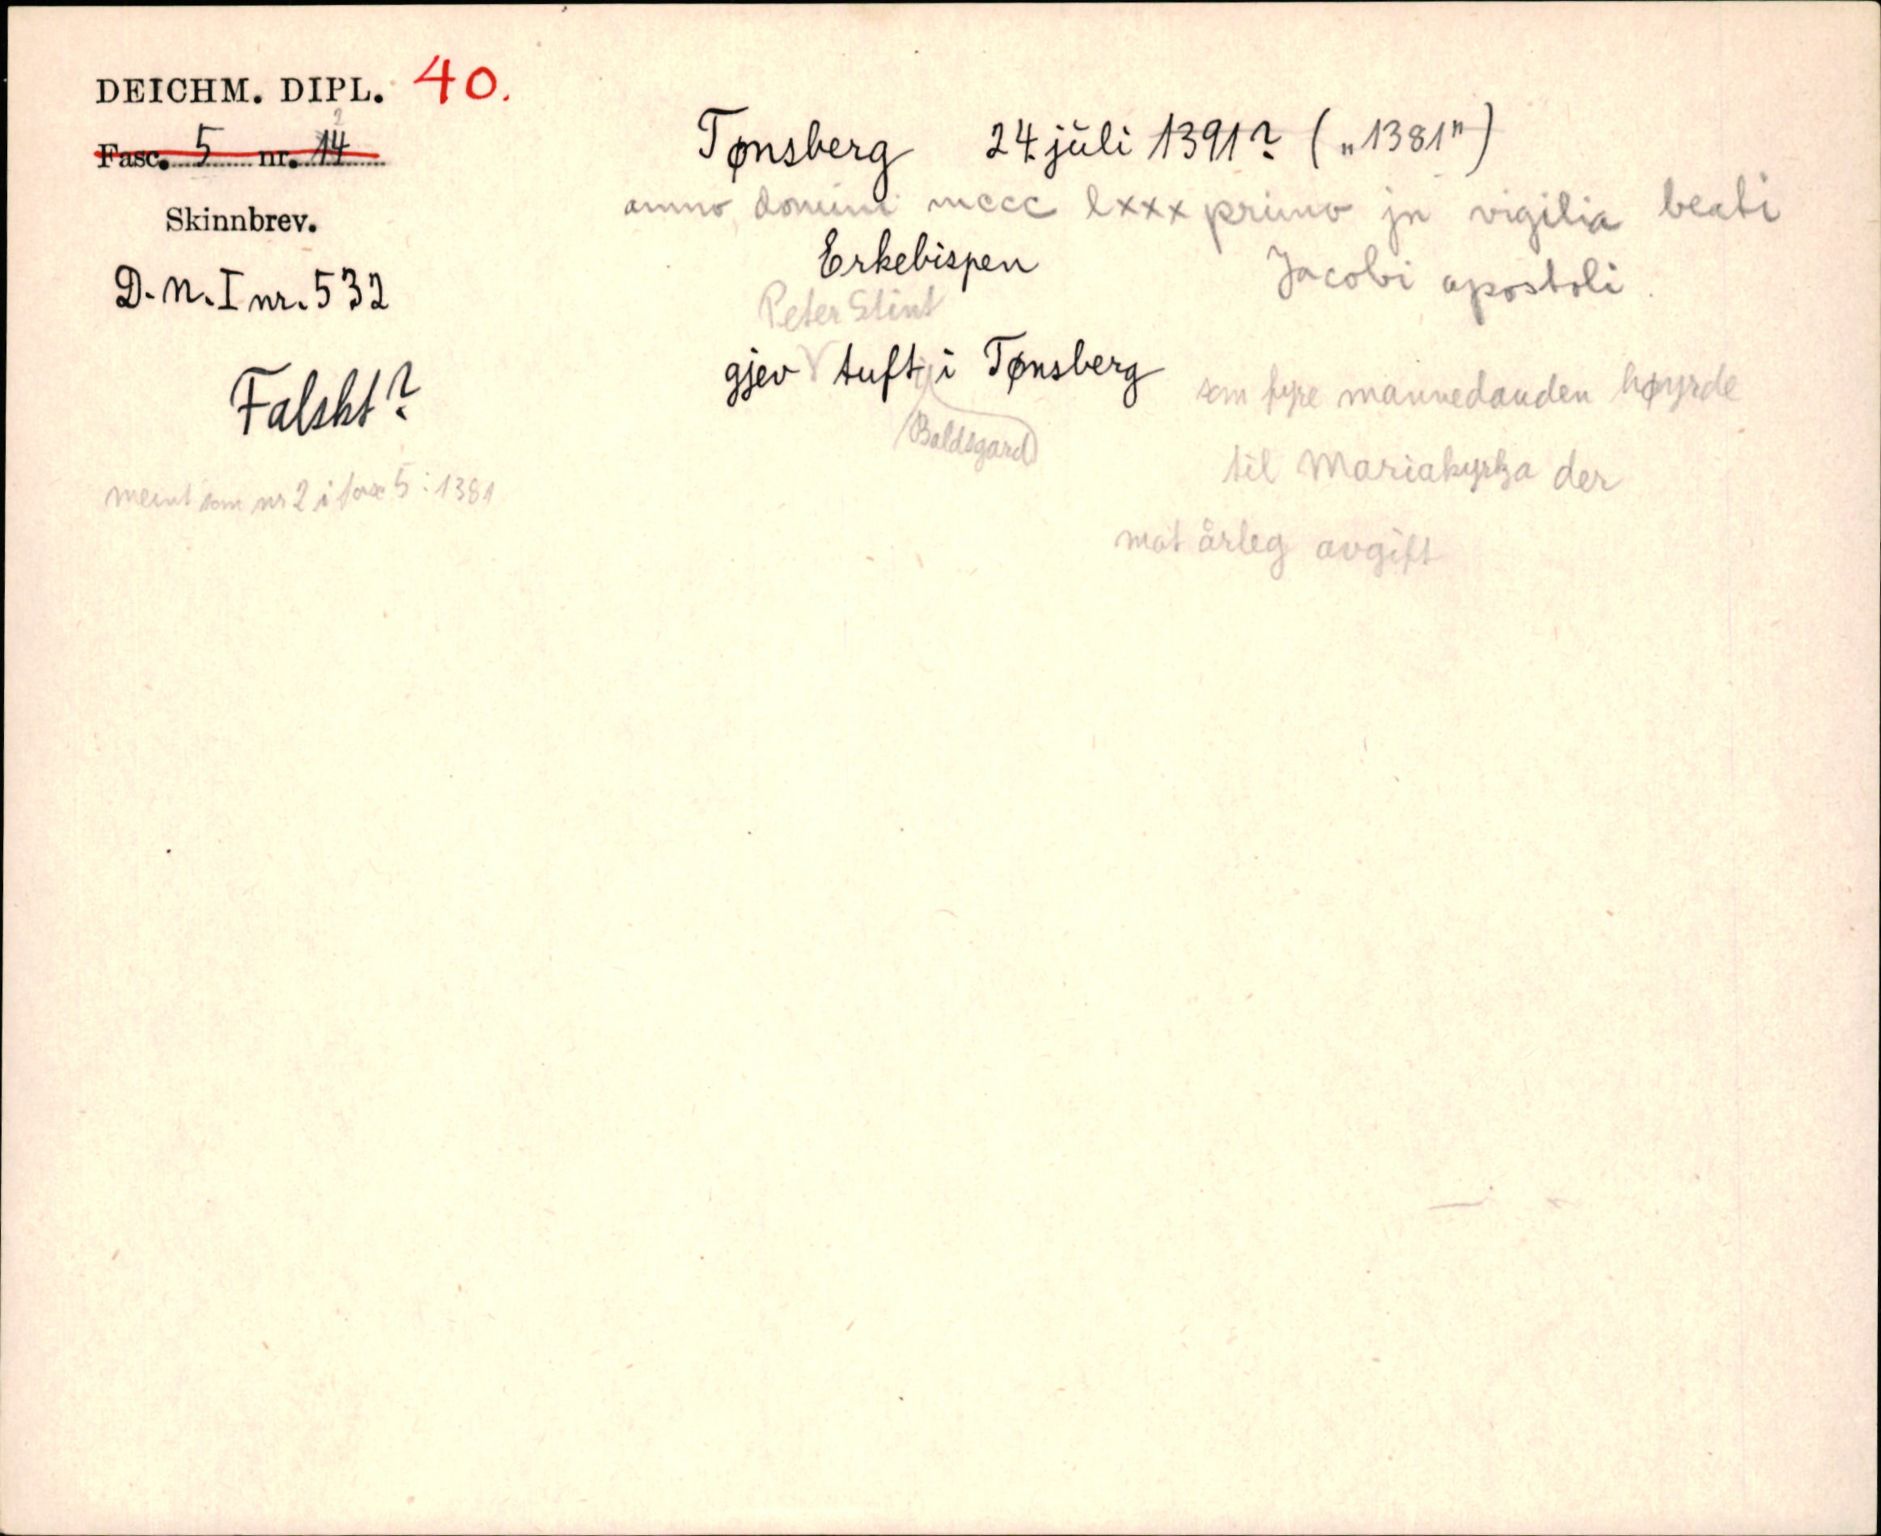 DEICHM. DIPL. 40.
Fasc. 5 nr. 14
2
Skinnbrev.
D.N. I nr. 532
Falskt?
meint som nr 2 i fasc 5 : 1381
Tønsberg 24. júli 1391? („1381")
anno domini mccc lxxx primo jn vigilia beati
Jacobi apostoli.
Erkebispen
Peter Stint
gjev V tuft i Tønsberg som fyre mannedauden høyrde
(Baldsgard)
til Mariakyrkja der
mot årleg avgift